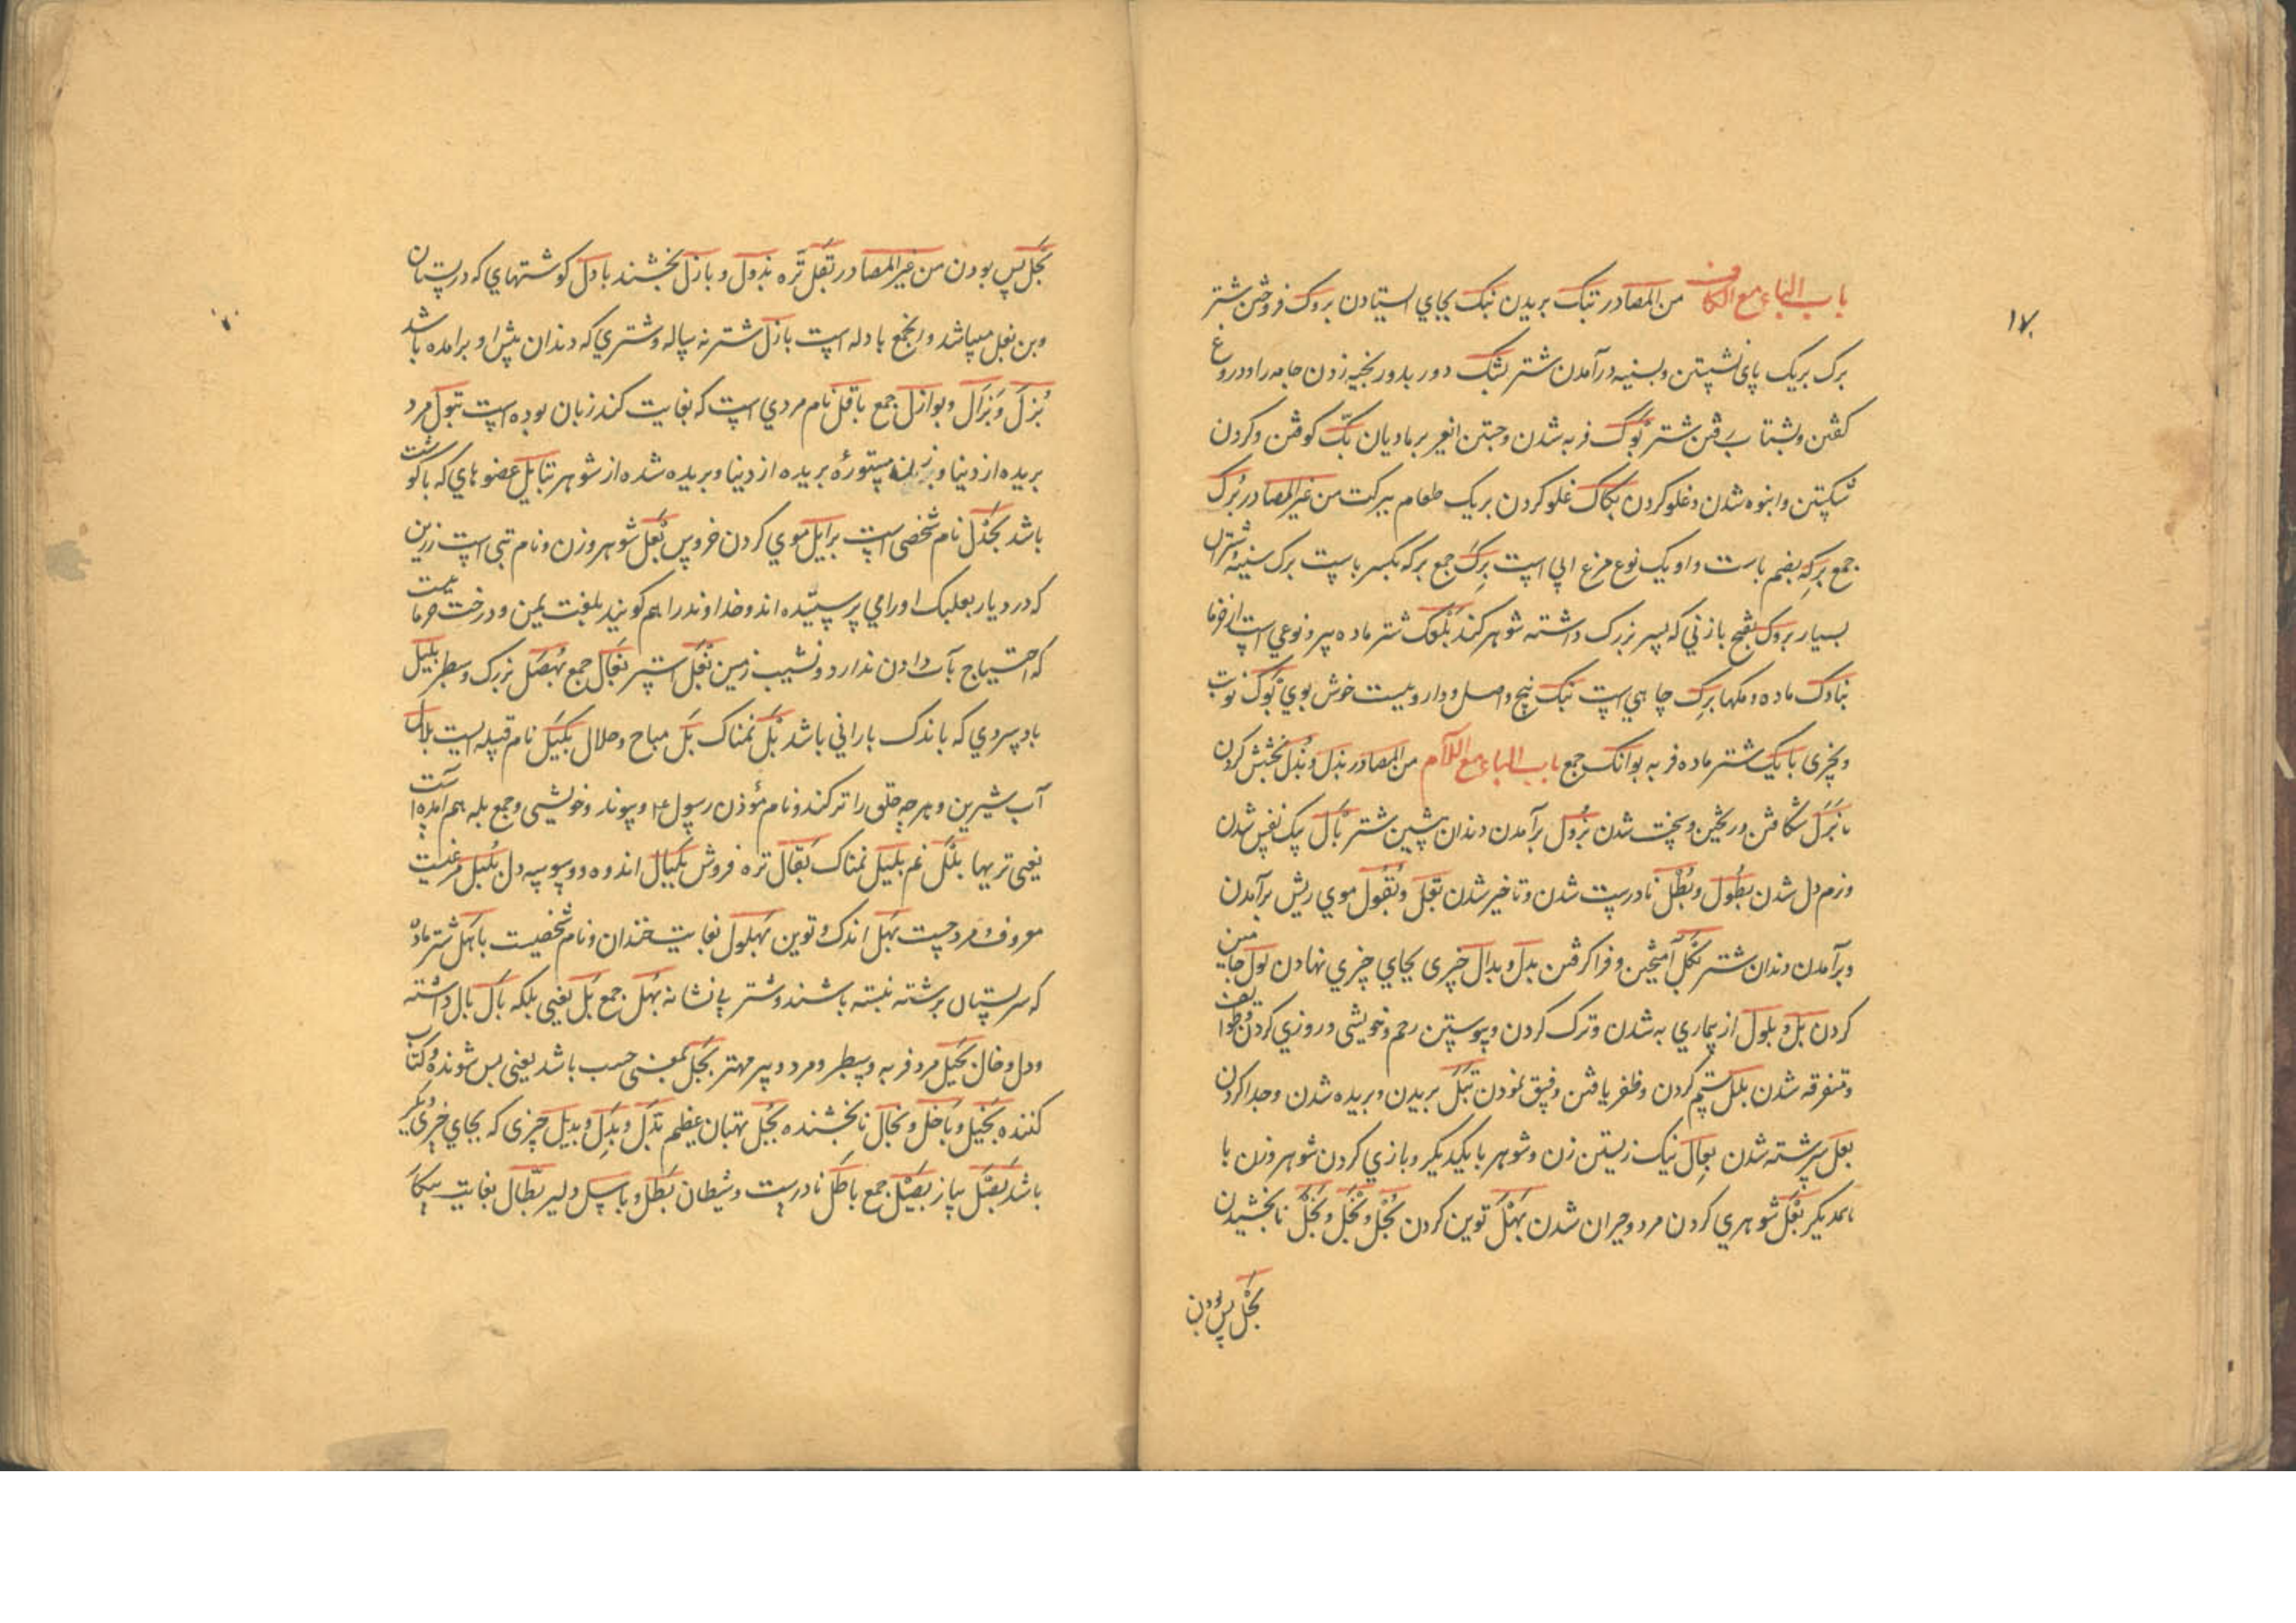 ۱۷
باب الباء مع الکاف من المصادر بتک بریدن نبک بجاي ایستادن بروک فروختن شتر
برک بریک پای نشستن و بسینه درآمدن شتر بشک دور بدور بخیه زدن جامه را و دروغ
کفتن و بشتاب رفتن شتر بوک فربه شدن و جستن بر مادیان بکّ کوفتن و کردن
شکستن و انبوه شدن و غلو کردن بکاک غلو کردن بریک طعام ببرکت من غیر المصادر برک
جمع برکه بضم باست و او یک نوع مرغ ابی است برک جمع برکه بکسر باست برک سینهٔ شتران
بسیار بروک بفتح با زنی که پسر بزرک داشته شوهر کند بلعک شتر ماده پیر و نوعي است از خرما
بنادک ماده و مکها برک چاهي است بنک بیخ و اصل و داروییست خوش بوي بوک نوبت
و چیزی بایک شتر ماده فربه بوانک جمع باب الباء مع اللام من المصادر بذل و بذل بخشش کردن
بزل شکافتن و ریختن و سخت شدن بزول برآمدن دندان پیشین شتر بال سبک نفس شدن
و نرم دل شدن بطول و بطل نادرست شدن و تاخیر شدن بقل و بقول موي ریش برآمدن
و برآمدن دندان شتر بکل آمیختن و فرا کرفتن بدل و بدال چیزی بجاي چیزي نهادن بول
کردن بلّ و بلول از بیماري به شدن و ترک کردن و پیوستن رحم و خویشی و روزي کردن
و متفرقه شدن بلل ستم کردن و ظفر یافتن و فسق نمودن بتل بریدن و بریده شدن و جدا کردن
بعل سرشته شدن بعال نیک زیستن زن و شوهر با یکدیکر و بازي کردن شوهر و زن با
یکدیکر بعل شوهري کردن مرد و حیران شدن بهل توین کردن بخل و بخل و بخل نابخشیدن
بجل بس بودن
بجل بس بودن من غیر المصادر بقل تره بذول و باذل بخشند بادل کوشتهاي که در پستان
و بن بغل میباشد و جمع بادله است بازل شتر نه ساله و شتري که دندان پیش او برامده باشد
بزل و بزال و بوازل جمع باقل نام مردي است که بغایت کند زبان بوده است بتول مرد
بریده از دنیا و زن مستورهٔ بریده از دنیا و بریده شده از شوهر بتایل عضوهاي که با کوشت
باشد بجدل نام شخصی است برایل موي کردن خروس بعل شوهر و زن و نام بتی است زرین
که در دیار بعلبک اورا می پرستیده اند و خداوند را هم کویند بلغت یمن و درخت خرما
که احتیاج بآب دادن ندارد و نشیب زمین بغل استر بغال جمع بهصل بزرک و سطبر بلیل
باد سردي که باندک باراني باشد بلّ نمناک بلّ مباح و حلال بکیل نام قبیله ایست بلال
آب شیرین و هرچه حلق را تر کند و نام مؤذن رسول و پیوند و خویشی و جمع بله هم آمده است
یعنی تریها بلل نم بلیل نمناک بقال تره فروش بلبال اندوه و وسوسه دل بلبل مرغیست
معروف و مرد چست بهل اندک و توین بهلول بغایت خندان و نام شخصیست باهل شتر ماده
که سر پستان برشته نبسته باشند و شتر بي نشانه بهل جمع بل یعنی بلکه بال بال داشته
و دل و حال بجیل مرد فربه و سطبر و مرد و پیر مهتر بجل بمعنی حسب باشد یعنی بس شونده
کننده بخیل و باخل و بخال نابخشنده بجل بهتان عظیم بدل و بدل و بدیل چیزی که بجاي چیزی دیکر
باشد بصل پیاز بصیل جمع باطل نادرست و شیطان بطل و باسل دلیر بطّال بغایت بیکار